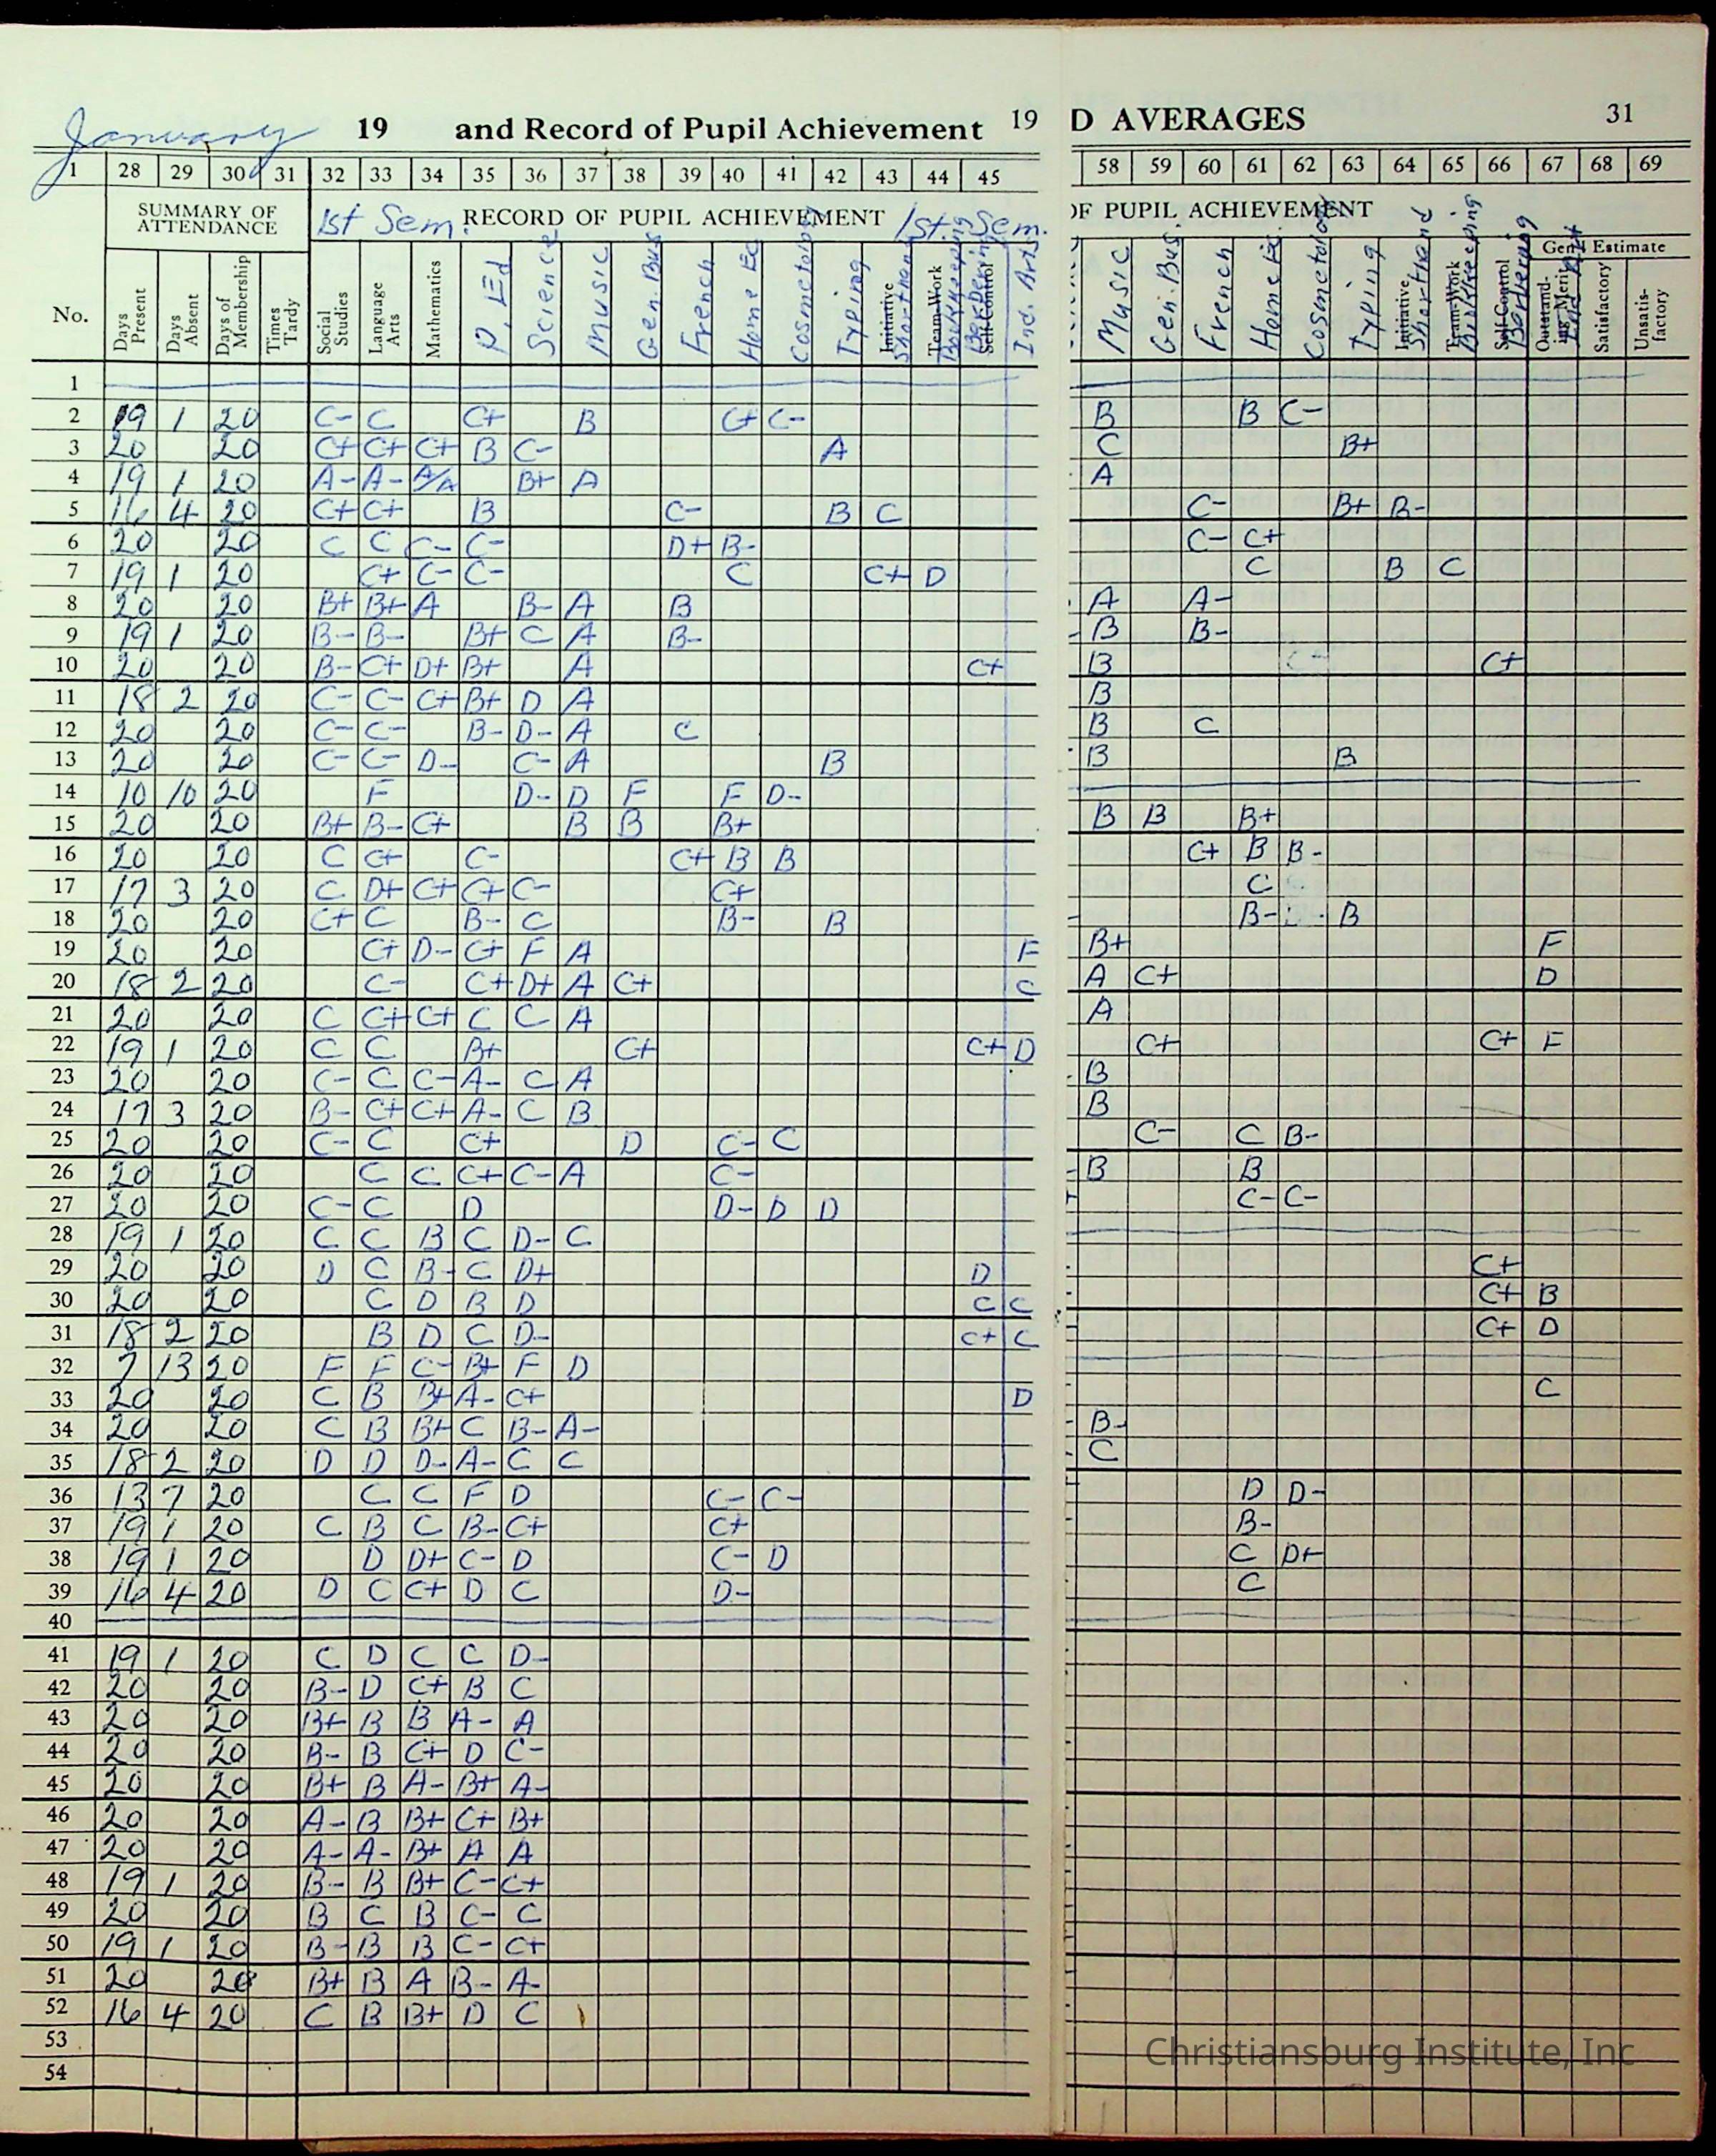 January 19 and Record of Pupil Achievement 19
1 28 29 30 31 32 33 34 35 36 37 38 39 40 41 42 43 44 45
SUMMARY OF ATTENDANCE 1st Sem. RECORD OF PUPIL ACHIEVEMENT 1st. Sem.
No. Days Present Days Absent Days of Membership Times Tardy Social Studies Language Arts Mathematics P. Ed Science Music Gen. Bus French Home Ec Cosmetology Typing Initiative Shorthand Team-Work Bookkeeping Self-Control Barbering Ind. Arts
1
2 19 1 20 C- C C+ B C+ C-
3 20 20 C+ C+ C+ B C- A
4 19 1 20 A- A- A/A B+ A
5 16 4 20 C+ C+ B C- B C
6 20 20 C C C- C- D+ B-
7 19 1 20 C+ C- C- C C+ D
8 20 20 B+ B+ A B- A B
9 19 1 20 B- B- B+ C A B-
10 20 20 B- C+ D+ B+ A C+
11 18 2 20 C- C- C+ B+ D A
12 20 20 C- C- B- D- A C
13 20 20 C- C- D- C- A B
14 10 10 20 F D- D F F D-
15 20 20 B+ B- C+ B B B+
16 20 20 C C+ C- C+ B B
17 17 3 20 C D+ C+ C+ C- C+
18 20 20 C+ C B- C B- B
19 20 20 C+ D- C+ F A F
20 18 2 20 C- C+ D+ A C+ C
21 20 20 C C+ C+ C C A
22 19 1 20 C C B+ C+ C+ D
23 20 20 C- C C- A- C A
24 17 3 20 B- C+ C+ A- C B
25 20 20 C- C C+ D C- C
26 20 20 C C C+ C- A C-
27 20 20 C- C D D- D D
28 19 1 20 C C B C D- C
29 20 20 D C B- C D+ D
30 20 20 C D B D C C
31 18 2 20 B D C D- C+ C
32 7 13 20 F F C- B+ F D
33 20 20 C B B+ A- C+ D
34 20 20 C B B+ C B- A-
35 18 2 20 D D D- A- C C
36 13 7 20 C C F D C- C-
37 19 1 20 C B C B- C+ C+
38 19 1 20 D D+ C- D C- D
39 16 4 20 D C C+ D C D-
40
41 19 1 20 C D C C D-
42 20 20 B- D C+ B C
43 20 20 B+ B B A- A
44 20 20 B- B C+ D C-
45 20 20 B+ B A- B+ A-
46 20 20 A- B B+ C+ B+
47 20 20 A- A- B+ A A
48 19 1 20 B- B B+ C- C+
49 20 20 B C B C- C
50 19 1 20 B- B B C- C+
51 20 20 B+ B A B- A-
52 16 4 20 C B B+ D C
53
54
D AVERAGES 31
58 59 60 61 62 63 64 65 66 67 68 69
OF PUPIL ACHIEVEMENT
Gen'l Estimate
Music Gen. Bus. French Home Ec. Cosmetology Typing Initiative Shorthand Team-Work Bookkeeping Self-Control Barbering Outstanding Merit Ind Art Satisfactory Unsatisfactory
B B C-
C B+
A
C- B+ B-
C- C+
C B C
A A-
B B-
B C+
B
B C
B B
B B B+
C+ B B-
C
B- B
B+ F
A C+ D
A
C+ C+ F
B
B
C- C B-
B B
C- C-
C+
C+ B
C+ D
C
B-
C
D D-
B-
C D+
C
Christiansburg Institute, Inc